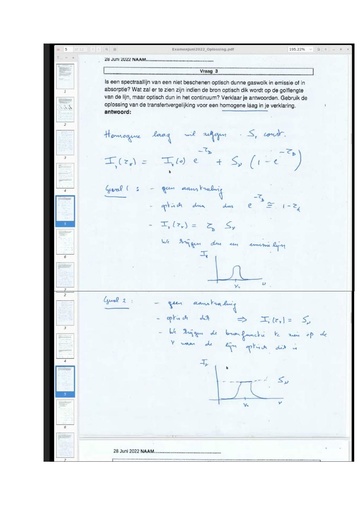 Examenjuni2022_Oplossing.pdf
28 Juni 2022 NAAM
Vraag 3
Is een spectraallijn van een niet beschenen optisch dunne gaswolk in emissie of in
absorptie? Wat zal er te zien zijn indien de bron optisch dik wordt op de golflengte
van de lijn, maar optisch dun in het continuum? Verklaar je antwoorden. Gebruik de
oplossing van de transfertvergelijking voor een homogene laag in je verklaring.
antwoord:
Homogene laag wil zeggen : Sν const.
Iν(τν) = Iν(0) e^-τν + Sν (1 - e^-τν)
Geval 1 : - geen aanstraling
- optisch dun dus e^-τν ≅ 1 - τν
- Iν(τν) = τν Sν
We krijgen dus een emissielijn
Iν
ν₀ ν
Geval 2 : - geen aanstraling
- optisch dik ⇒ Iν(τν) = Sν
- We krijgen de bronfunctie te zien op de
ν waar de lijn optisch dik is
Iν
Sν
ν₀ ν
28 Juni 2022 NAAM